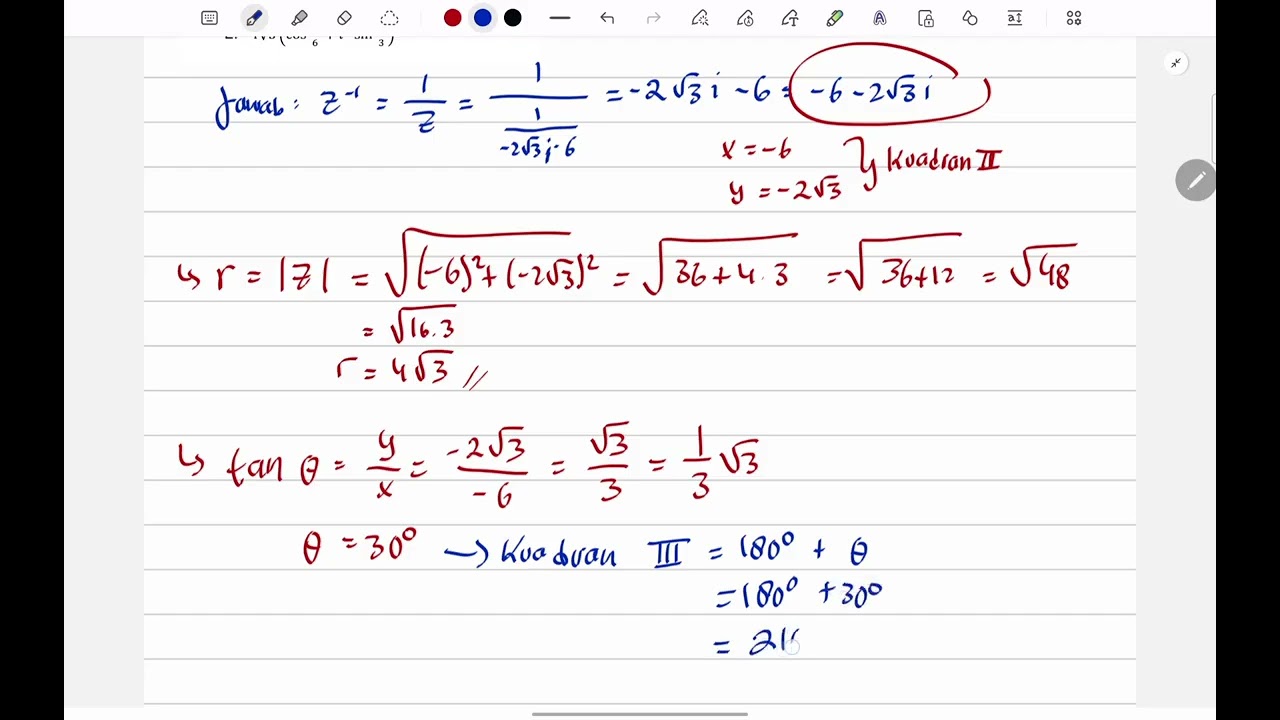 Jawab: z⁻¹ = 1/z = 1/(1/(-2√3 i - 6)) = -2√3 i - 6 = -6 - 2√3 i
x = -6
y = -2√3
} Kuadran II
↳ r = |z| = √((-6)² + (-2√3)²) = √(36 + 4.3) = √(36+12) = √48
= √(16.3)
r = 4√3 //
↳ tan θ = y/x = -2√3/-6 = √3/3 = 1/3 √3
θ = 30° → Kuadran III = 180° + θ
= 180° + 30°
= 21